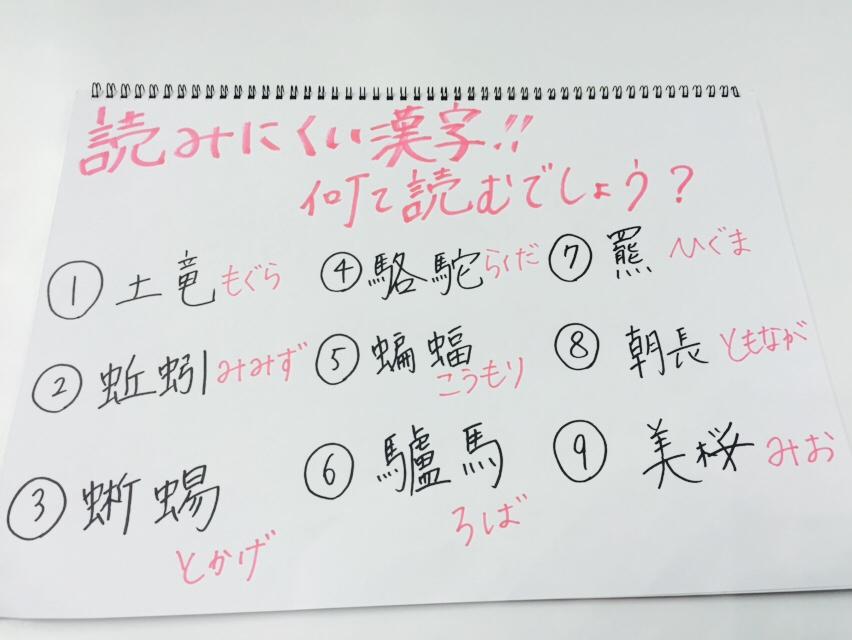 読みにくい漢字!!
何て読むでしょう?
① 土竜 もぐら
② 蚯蚓 みみず
③ 蜥蜴
とかげ
④ 駱駝 らくだ
⑤ 蝙蝠
こうもり
⑥ 驢馬
ろば
⑦ 羆 ひぐま
⑧ 朝長 ともなが
⑨ 美桜 みお